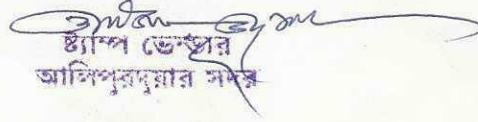 ষ্ট্যাম্প ভেন্ডার
আলিপুরদুয়ার সদর